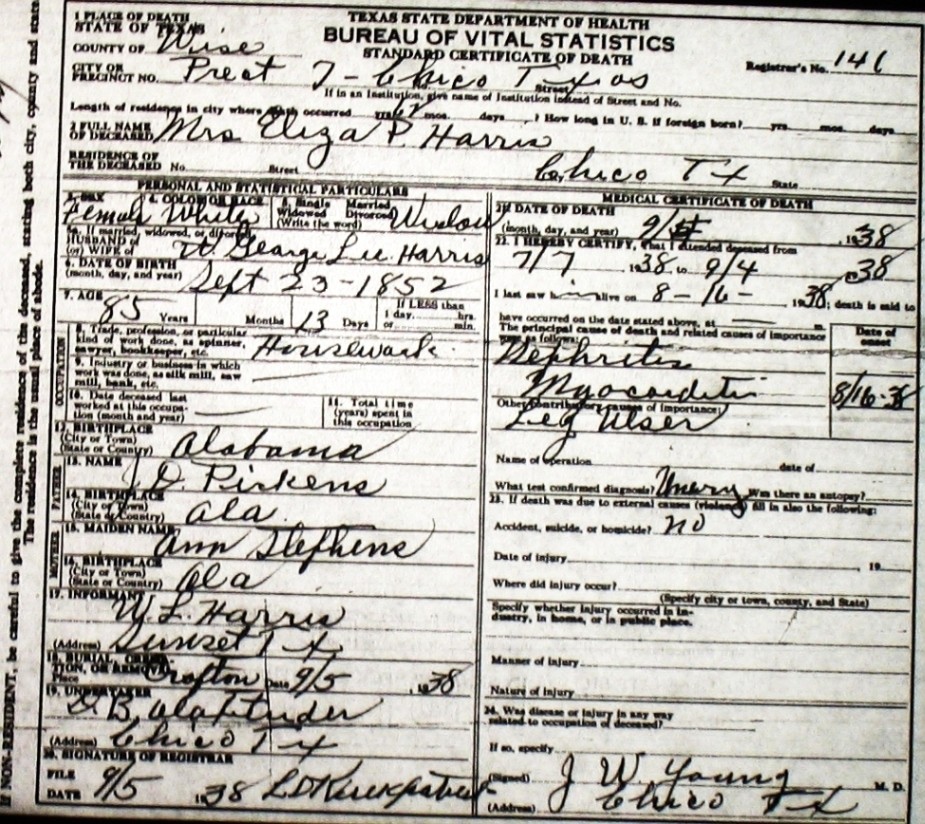 TEXAS STATE DEPARTMENT OF HEALTH
BUREAU OF VITAL STATISTICS
STANDARD CERTIFICATE OF DEATH
1 PLACE OF DEATH
STATE OF TEXAS
COUNTY OF Wise
Registrar's No. 141
CITY OR PRECINCT NO. Prect 7 - Chico Texas Street
If in an Institution, give name of Institution instead of Street and No.
Length of residence in city where death occurred yrs. mos. days ? How long in U. S. if foreign born? yrs. mos. days
2 FULL NAME OF DECEASED Mrs Eliza P. Harris
RESIDENCE OF THE DECEASED No. Street City Chico Tx State
PERSONAL AND STATISTICAL PARTICULARS
3. SEX Female
4. COLOR OR RACE White
5. Single Married Widowed Divorced (Write the word) Widow
5a. If married, widowed, or divorced HUSBAND of (or) WIFE of W. George Lee Harris
6. DATE OF BIRTH (month, day, and year) Sept 23-1852
7. AGE 85 Years Months 13 Days If LESS than 1 day, hrs. or min.
OCCUPATION
8. Trade, profession, or particular kind of work done, as spinner, sawyer, bookkeeper, etc. Housework
9. Industry or business in which work was done, as silk mill, saw mill, bank, etc.
10. Date deceased last worked at this occupation (month and year)
11. Total time (years) spent in this occupation
12. BIRTHPLACE (City or Town) (State or Country) Alabama
FATHER
13. NAME J. D. Pickens
14. BIRTHPLACE (City or Town) (State or Country) Ala
MOTHER
15. MAIDEN NAME Ann Stephens
16. BIRTHPLACE (City or Town) (State or Country) Ala
17. INFORMANT W. L. Harris
(Address) Sunset Tx
18. BURIAL, CREMATION, OR REMOVAL
Place Crafton Date 9/5, 1938
19. UNDERTAKER D. B.
(Address) Chico Tx
20. SIGNATURE OF REGISTRAR
FILE DATE 9/5 1938 LD Kirkpatrick
MEDICAL CERTIFICATE OF DEATH
21. DATE OF DEATH (month, day, and year) 1938
22. I HEREBY CERTIFY, that I attended deceased from
7/7 1938 to 9/4 1938
I last saw h alive on 8-16- 1938; death is said to
have occurred on the date stated above, at m.
The principal cause of death and related causes of importance were as follows: Date of onset
Nephritis
Myocarditis 8/16-38
Other contributory causes of importance:
Leg Ulser
Name of operation date of
What test confirmed diagnosis? Was there an autopsy?
23. If death was due to external causes (violence) fill in also the following:
Accident, suicide, or homicide? no
Date of injury 19
Where did injury occur?
(Specify city or town, county, and State)
Specify whether injury occurred in industry, in home, or in public place.
Manner of injury
Nature of injury
24. Was disease or injury in any way related to occupation of deceased?
If so, specify
(Signed) J W. Young M. D.
(Address) Chico Tx
If NON-RESIDENT, be careful to give the complete residence of the deceased, stating both city, county and state
The residence is the usual place of abode.